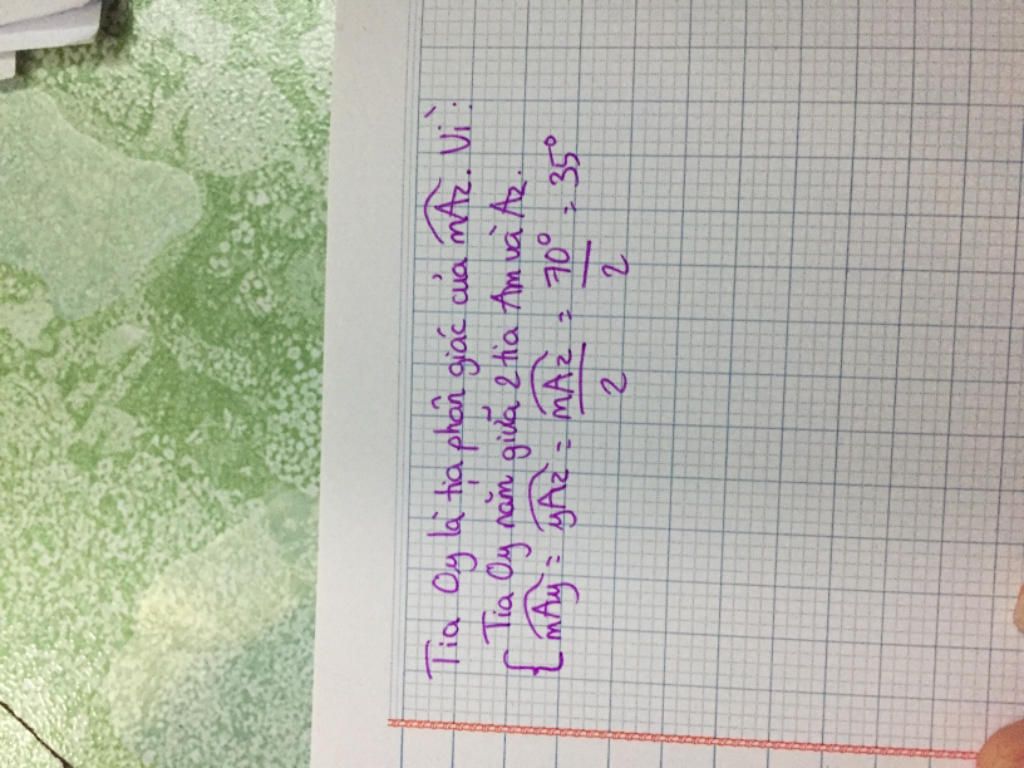 Tia Oy là tia phân giác của mAz. Vì:
Tia Oy nằm giữa 2 tia Am và Az.
{ mAy = yAz = mAz/2 = 70°/2 = 35°